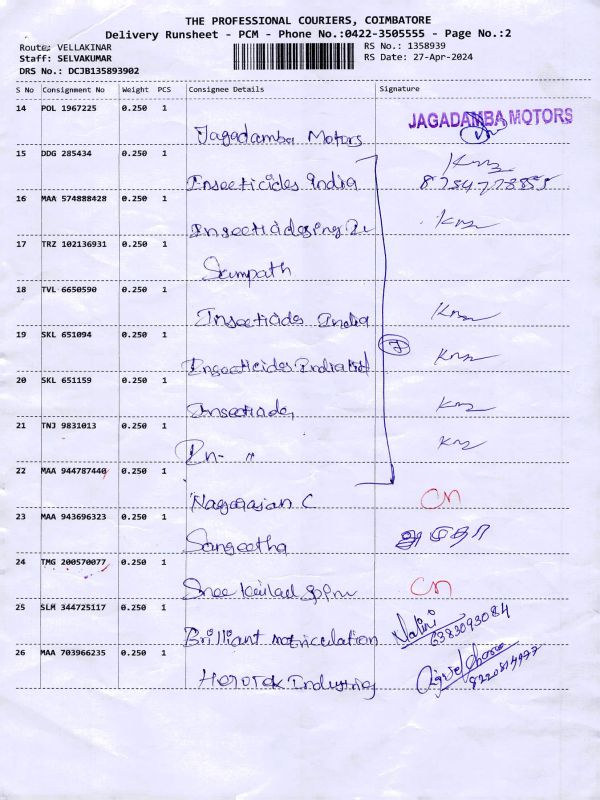 THE PROFESSIONAL COURIERS, COIMBATORE
Delivery Runsheet - PCM - Phone No.:0422-3505555 - Page No.:2
Route: VELLAKINAR RS No.: 1358939
Staff: SELVAKUMAR RS Date: 27-Apr-2024
DRS No.: DCJB135893902
S No Consignment No Weight PCS Consignee Details Signature
14 POL 1967225 0.250 1 JAGADAMBA MOTORS
Jagadamba Motors
15 DDG 285434 0.250 1
Insecticides India
16 MAA 574888428 0.250 1
17 TRZ 102136931 0.250 1
Sampath
18 TVL 6650590 0.250 1
Insecticides India
19 SKL 651094 0.250 1
7
Insecticides India ltd
20 SKL 651159 0.250 1
21 TNJ 9831013 0.250 1
22 MAA 944787440 0.250 1
Nagarajan C CN
23 MAA 943696323 0.250 1
Sangeetha
24 TMG 200570077 0.250 1
Sree CN
25 SLM 344725117 0.250 1
Brilliant matriculation Nalini 6383093084
26 MAA 703966235 0.250 1
Industries